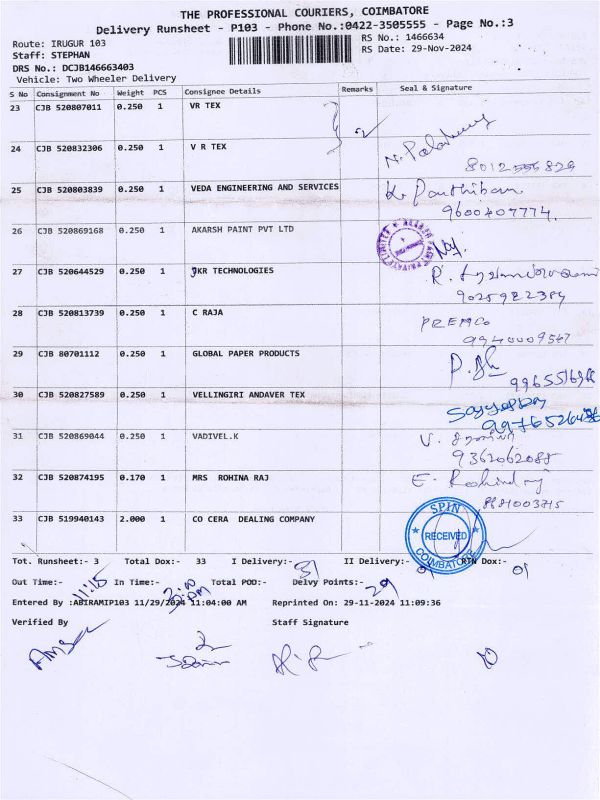 THE PROFESSIONAL COURIERS, COIMBATORE
Delivery Runsheet - P103 - Phone No.:0422-3505555 - Page No.:3
Route: IRUGUR 103
RS No.: 1466634
Staff: STEPHAN
RS Date: 29-Nov-2024
DRS No.: DCJB146663403
Vehicle: Two Wheeler Delivery
S No Consignment No Weight PCS Consignee Details Remarks Seal & Signature
23 CJB 520807011 0.250 1 VR TEX
24 CJB 520832306 0.250 1 V R TEX
25 CJB 520803839 0.250 1 VEDA ENGINEERING AND SERVICES
9600407774
26 CJB 520869168 0.250 1 AKARSH PAINT PVT LTD
27 CJB 520644529 0.250 1 JKR TECHNOLOGIES
9025922384
28 CJB 520813739 0.250 1 C RAJA PREMCO
9940009567
29 CJB 80701112 0.250 1 GLOBAL PAPER PRODUCTS
30 CJB 520827589 0.250 1 VELLINGIRI ANDAVER TEX
31 CJB 520869044 0.250 1 VADIVEL.K
9362062088
32 CJB 520874195 0.170 1 MRS ROHINA RAJ
33 CJB 519940143 2.000 1 CO CERA DEALING COMPANY
SPIN
RECEIVED
COIMBATORE
Tot. Runsheet:- 3 Total Dox:- 33 I Delivery:- 31 II Delivery:- 01 RTN Dox:- 01
Out Time:- 11:15 In Time:- Total POD:- Delvy Points:- 29
Entered By :ABIRAMIP103 11/29/2024 11:04:00 AM Reprinted On: 29-11-2024 11:09:36
Verified By Staff Signature